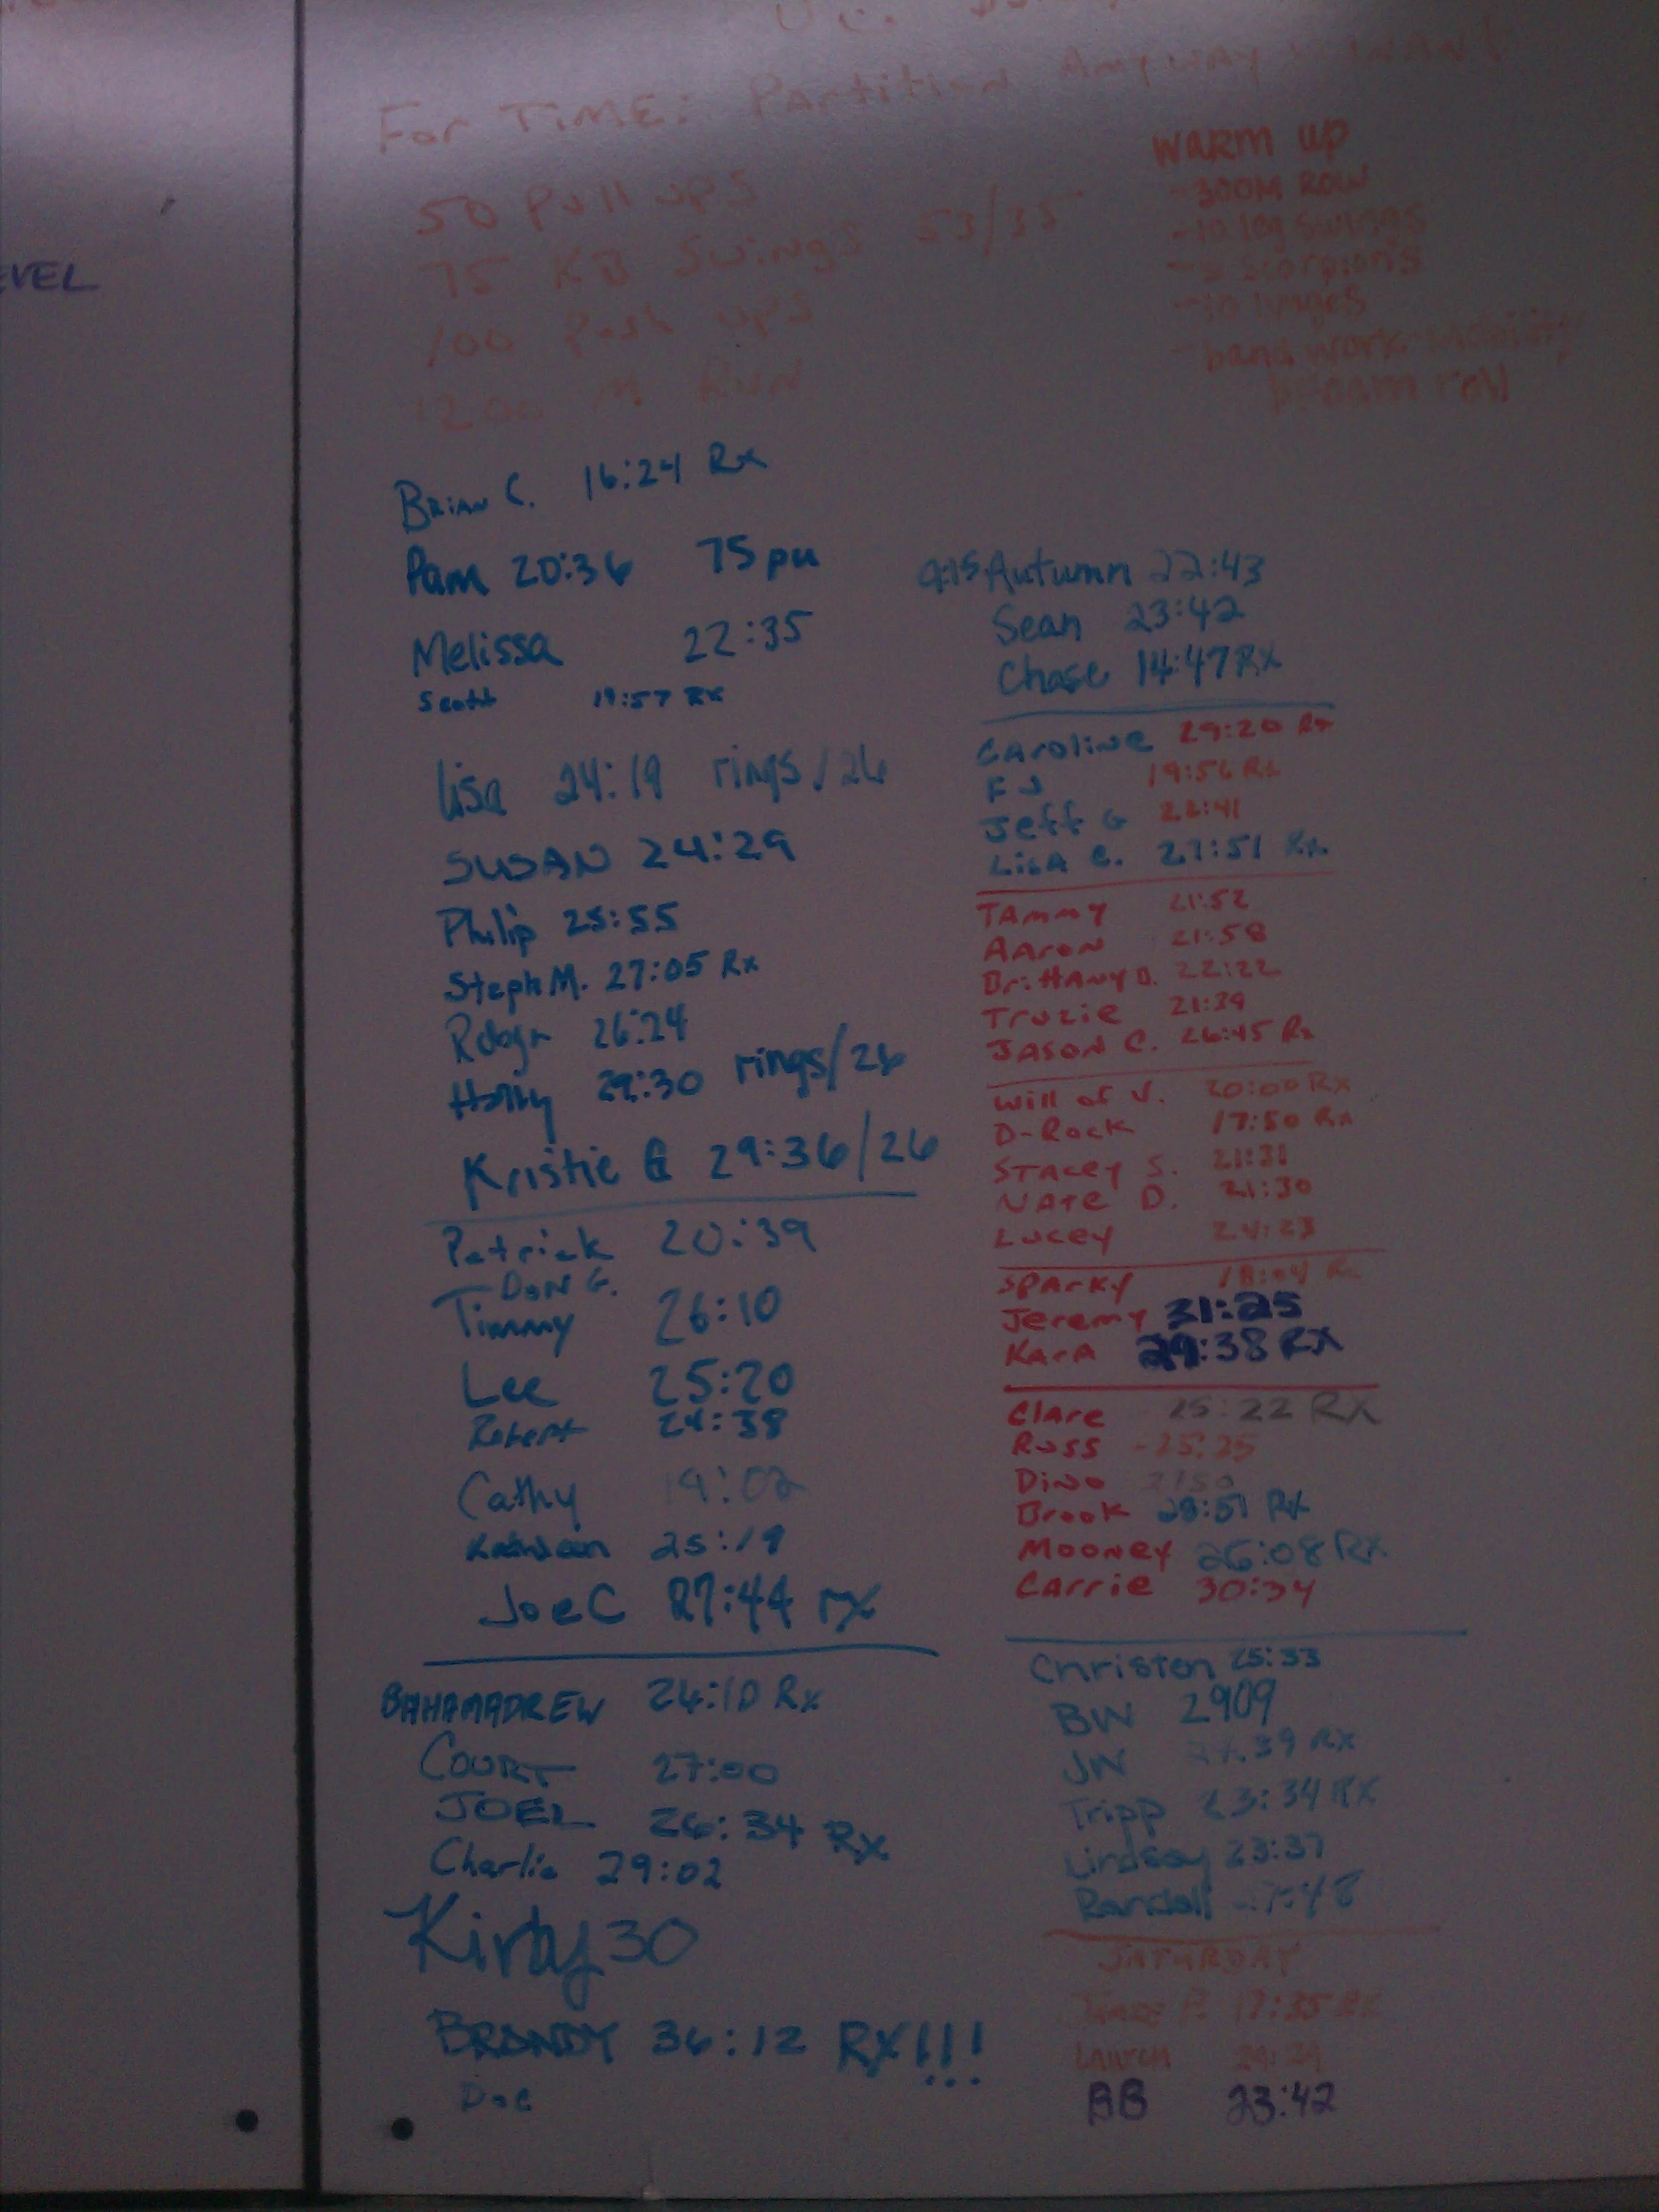 EVEL
For TIME: Partition Anyway
50 Pull ups
75 KB Swings 53/35
100 Push ups
1200 M Run
WARM UP
-300M ROW
-10 leg swings
- scorpions
-10 lunges
-band work mobility
foam roll
BRIAN C. 16:24 Rx
Pam 20:36 75 pu
Melissa 22:35
Scott 19:57 RX
Lisa 24:19 rings/26
SUSAN 24:29
Philip 25:55
Steph M. 27:05 Rx
Robyn 26:24
Holly 29:30 rings/26
Kristie G 29:36/26
Patrick 20:39
DON G.
Timmy 26:10
Lee 25:20
Robert 24:38
Cathy 19:02
Kathleen 25:19
Joe C 27:44 rx
BAHAMADREW 24:10 Rx
COURT 27:00
JOEL 26:34 Rx
Charlie 29:02
Kirby 30
BRANDY 36:12 RX!!!
Doc
9:15 Autumn 22:43
Sean 23:42
Chase 14:47 RX
CAROLINE 29:20 Rx
FJ 19:56 Rx
Jeff G 22:41
LISA C. 27:51 Rx
TAMMY 21:52
AARON 21:58
BrittANY D. 22:22
Truzie 21:39
JASON C. 26:45 Rx
Will of V. 20:00 RX
D-Rock 17:50 Rx
STACEY S. 21:31
NATE D. 21:30
Lucey 24:23
SPARKY 18:04
Jeremy 31:25
KARA 29:38 RX
Clare 25:22 RX
Russ -25:25
Dino
Brook 28:51 RX
MOONEY 26:08 RX
CARRIE 30:34
Christen 25:33
BW 2909
JW RX
Tripp 23:34 RX
Lindsay 23:37
Randall
SATURDAY
17:35 RX
Lauren
BB 23:42